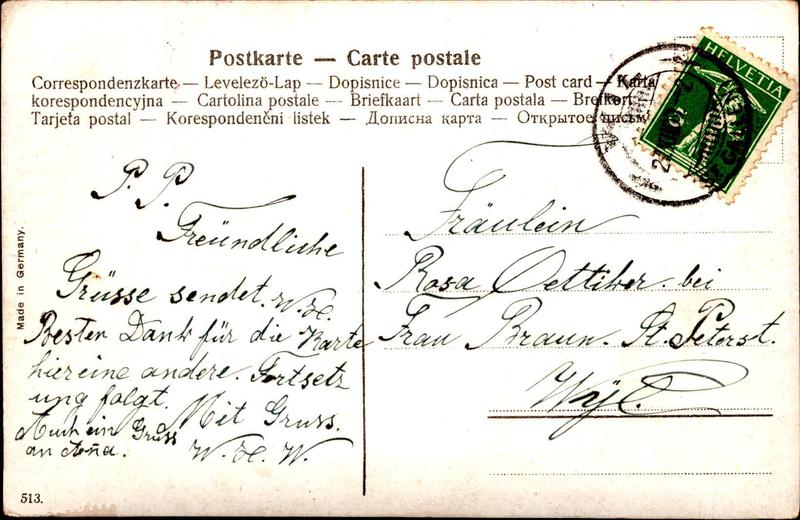 Postkarte — Carte postale
Correspondenzkarte — Levelező-Lap — Dopisnice — Dopisnica — Post card — Karta
korespondencyjna — Cartolina postale — Briefkaart — Carta postala — Brefkort
Tarjeta postal — Korespondenčni listek — Дописна карта — Открытое письмо
HELVETIA
P. P.
Freündliche
Grüsse sendet. W. H.
Besten Dank für die Karte
hier eine andere. Fortsetz
ung folgt.
Mit Gruss.
Auch ein Gruss
an
W. H. W.
Fräulein
Rosa Oettiker bei
Frau Braun. St. Peterst.
Wÿl
Made in Germany.
513.